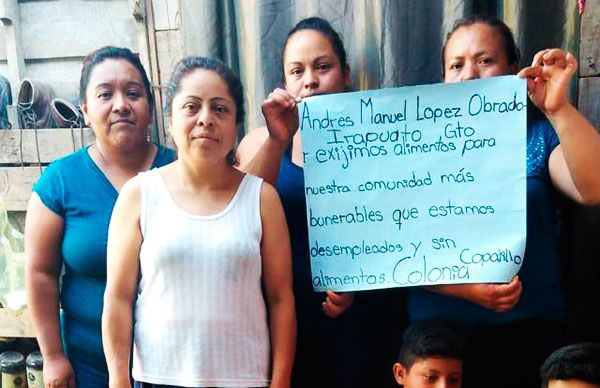 Andres Manuel Lopez Obrado
Irapuato Gto
exijimos alimentos para
nuestra comunidad más
bunerables que estamos
desempleados y sin
alimentos Colonia Copalillo